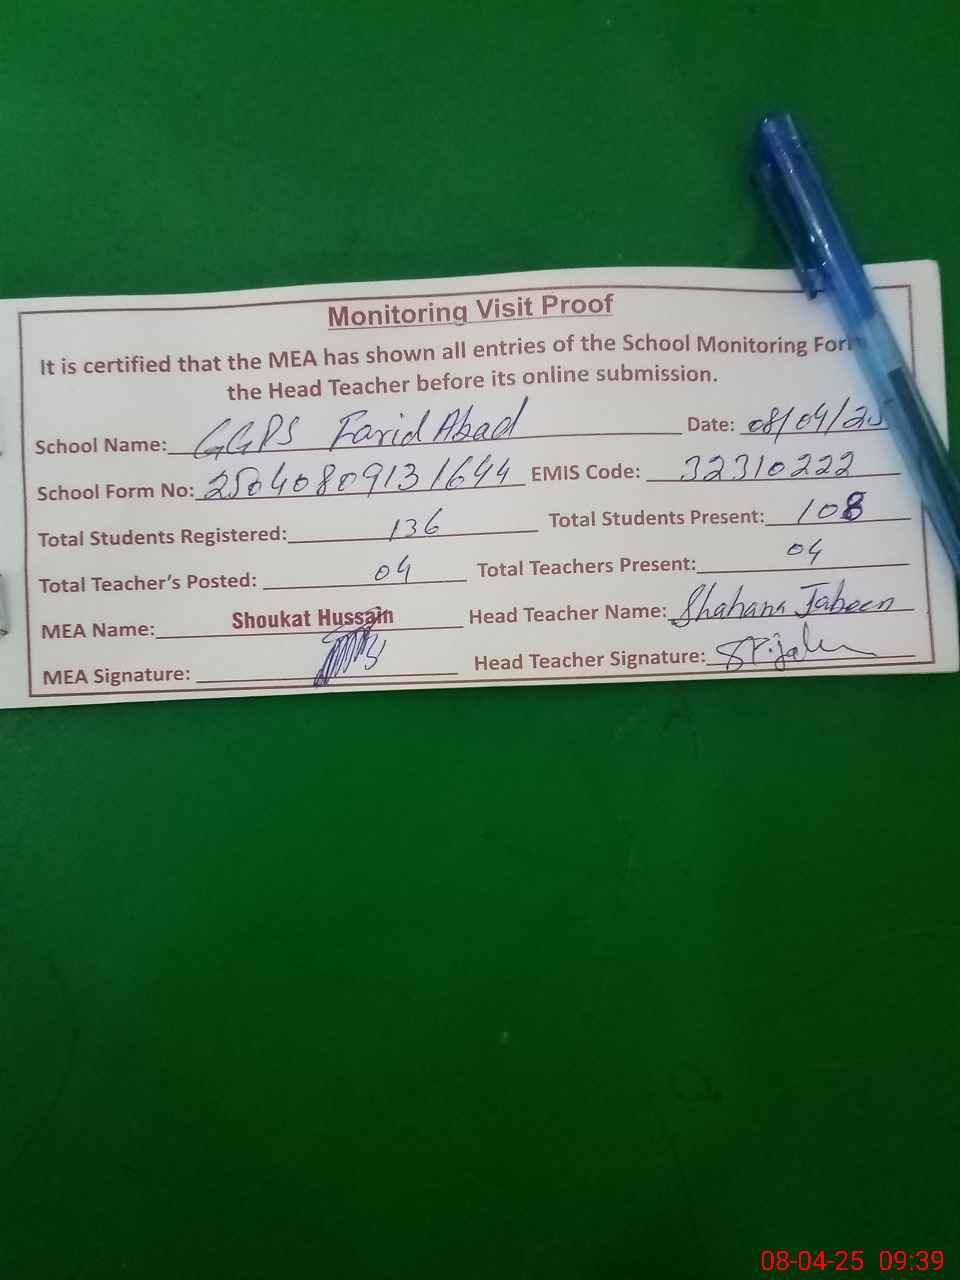 Monitoring Visit Proof
It is certified that the MEA has shown all entries of the School Monitoring Form
the Head Teacher before its online submission.
School Name: GGPS Farid Abad Date: 08/04/25
School Form No: 2504080913 1644 EMIS Code: 32310222
Total Students Registered: 136 Total Students Present: 108
Total Teacher's Posted: 04 Total Teachers Present: 04
MEA Name: Shoukat Hussain Head Teacher Name: Shahana Jabeen
MEA Signature: Head Teacher Signature:
08-04-25 09:39